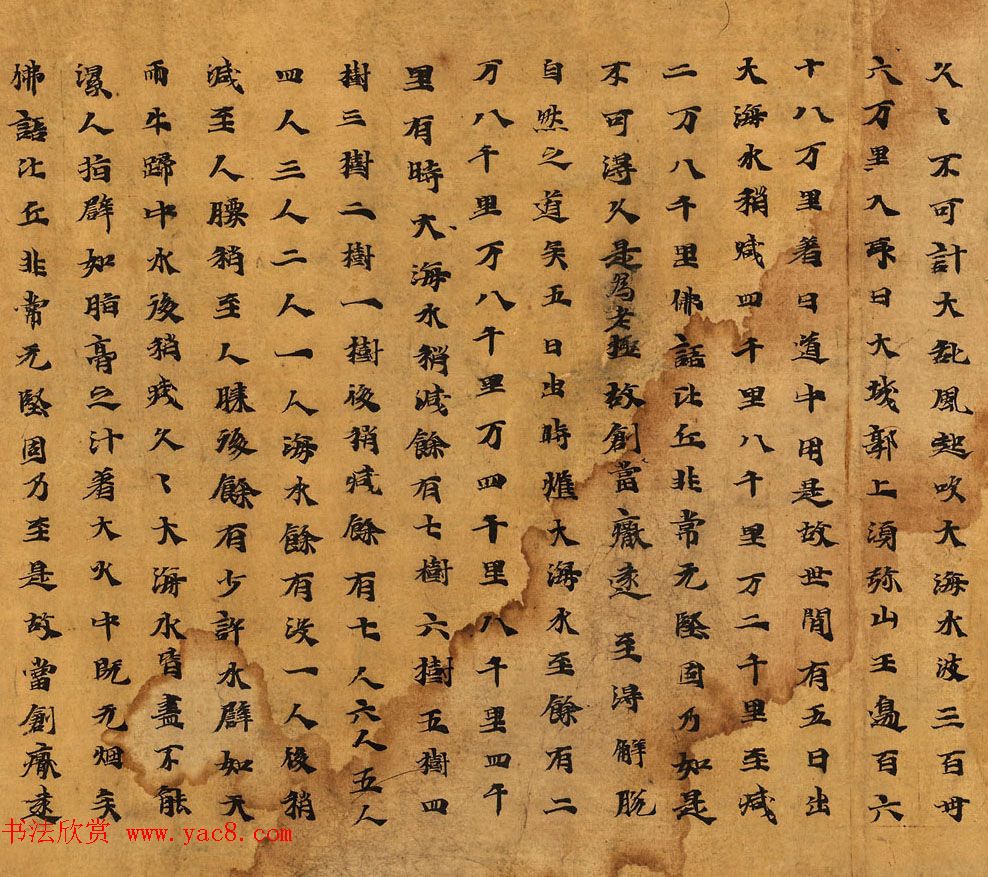 久〻不可計大乱風起吹大海水波三百卅
六万里入取日大城郭上湏弥山王邊百六
十八万里着日道中用是故世間有五日出
大海水稍减四千里八千里万二千里至减
二万八千里佛語比丘非常无堅固乃如是
不可得久是為老極故創當遠至得解脱
自然之道矣五日出時惟大海水至餘有二
万八千里万八千里万四千里八千里四千
里有時大海水稍減餘有七樹六樹五樹四
樹三樹二樹一樹後稍减餘有七人六人五人
四人三人二人一人海水餘有没一人後稍
減至人腰稍至人膝後餘有少許水譬如天
雨牛蹄中水後稍残久〻大海水皆盡不能
濕人指譬如脂膏之汁着大火中既无烟矣
佛語比丘非常无堅固乃至是故當創遠
书法欣赏 www.yac8.com